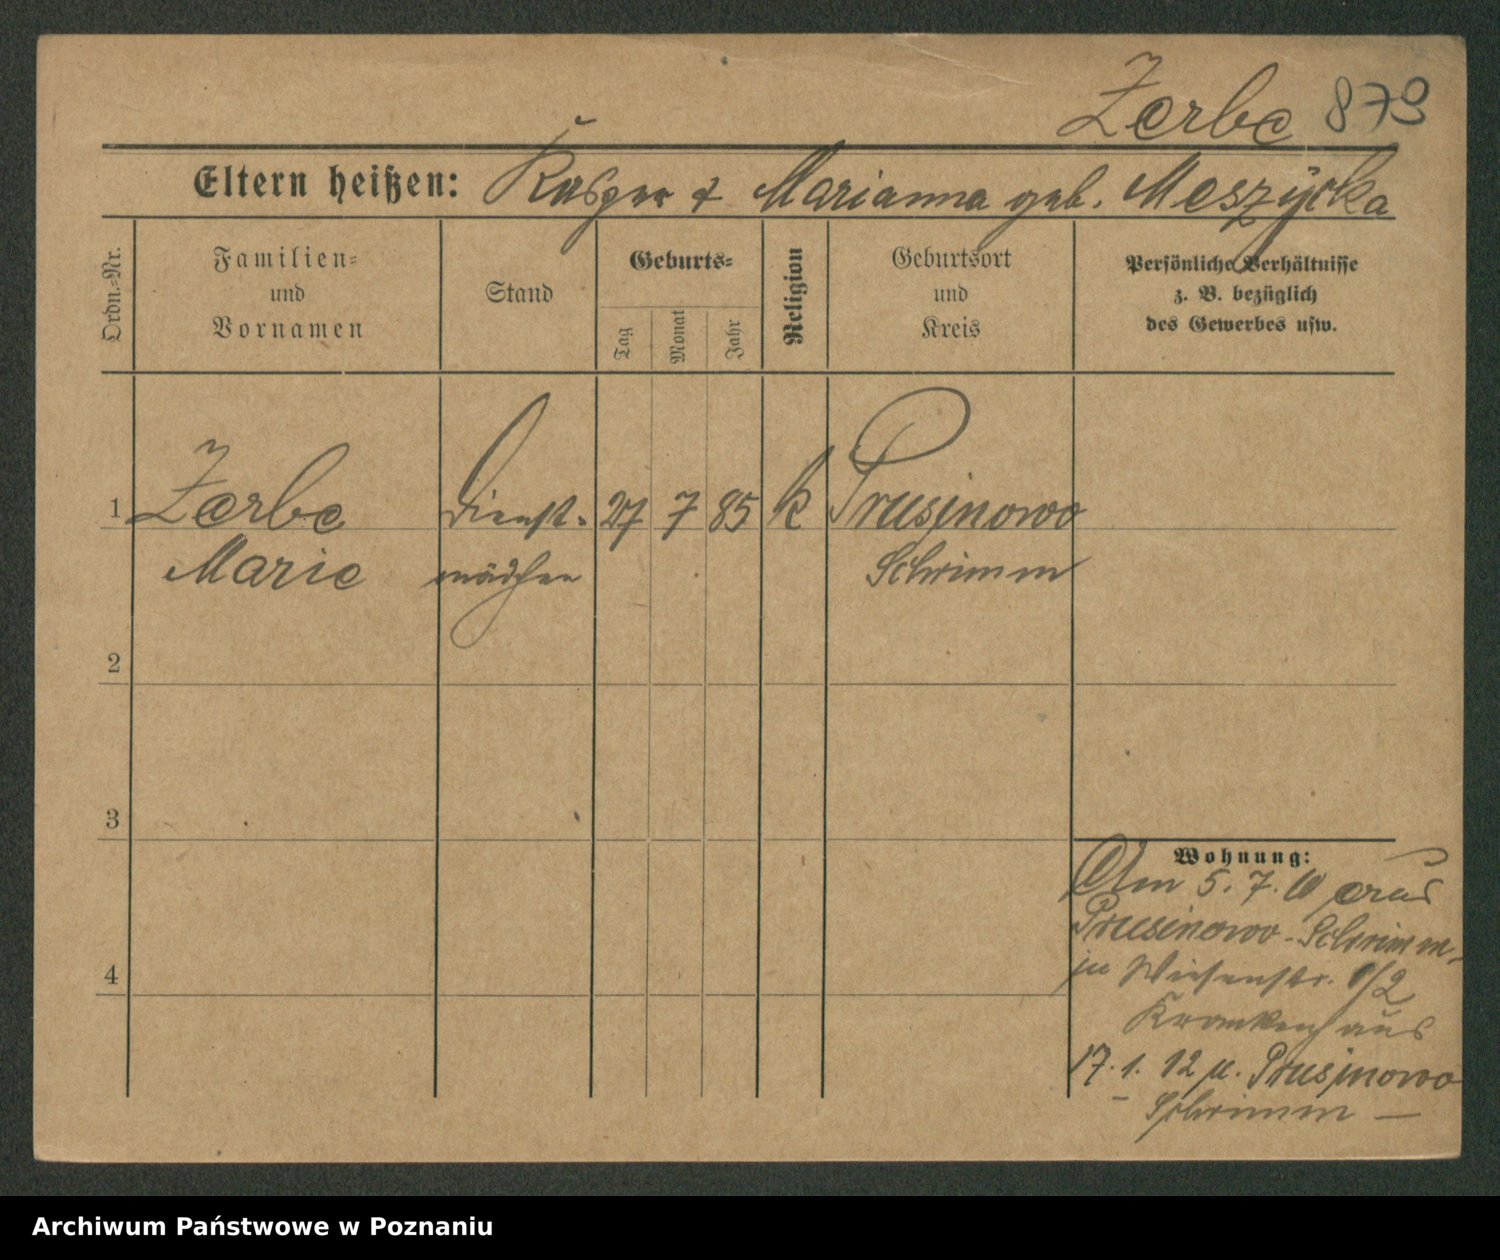 Zerbe 873
Eltern heißen: Kasper & Marianna geb. Meszycka
Ordn.-Nr.
Familien-
und
Vornamen
Stand
Geburts-
Tag
Monat
Jahr
Religion
Geburtsort
und
Kreis
Persönliche Verhältnisse
z. B. bezüglich
des Gewerbes usw.
1 Zerbe Dienst- 27 7 85 k Prusinowo
Marie mädchen Schrimm
2
3
4
Wohnung:
Am 5. 7. 10 aus
Prusinowo-Schrimm,
in Wiesenstr. 1/2
Krankenhaus
17. 1. 12 n. Prusinowo
Schrimm —
Archiwum Państwowe w Poznaniu